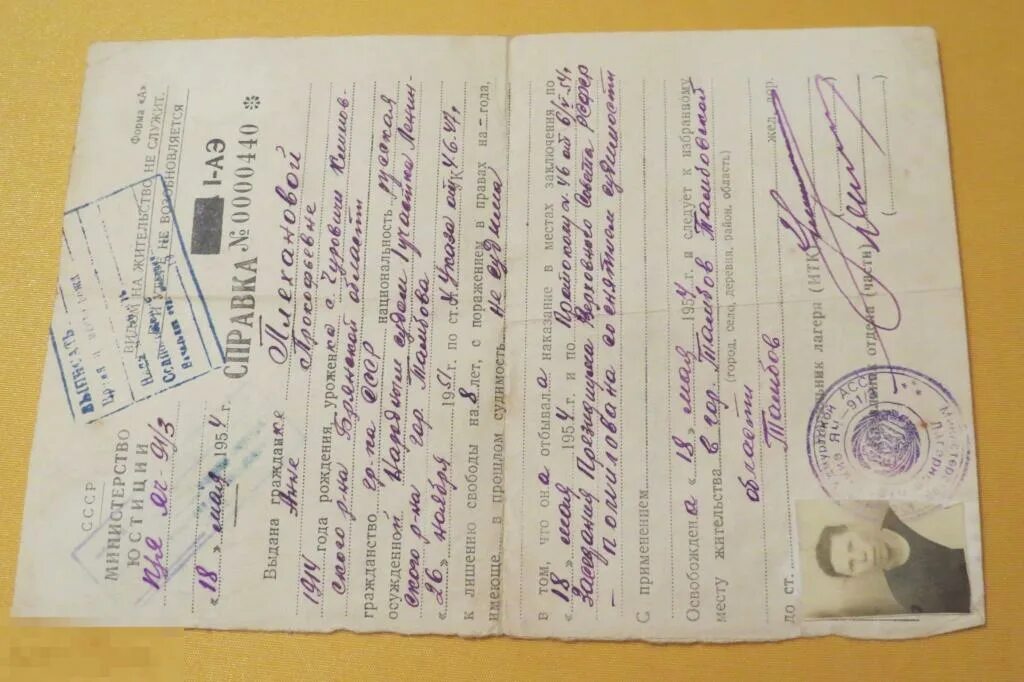 СССР
МИНИСТЕРСТВО
ЮСТИЦИИ
ЯЧ-91/3
«18» мая 1954 г.
Форма «А»
ВИДОМ НА ЖИТЕЛЬСТВО НЕ СЛУЖИТ.
НЕ ВОЗОБНОВЛЯЕТСЯ
ВЫПИСАТЬ
1-АЭ
СПРАВКА № 0000440 *
Выдана гражданке Плехановой
Анне Прокофьевне
1914 года рождения, уроженке с.
ского р-на Брянской области
гражданство гр-ка СССР национальность русская
осужденной Народным судом 1 участка Ленин-
ского р-на гор. Тамбова
«26» ноября 1951 г. по ст. Указа от 4/6.47г.
к лишению свободы на 8 лет, с поражением в правах на - года,
имеюще в прошлом судимость не судима
в том, что она отбывала наказание в местах заключения по
«18» мая 1954 г. и по Протоколу № 46 от 6/V-54г.
Заседания Президиума Верховного Совета РСФСР
- помилована со снятием судимости
С применением
Освобождена «18» мая 1954 г. и следует к избранному
месту жительства в гор. Тамбов Тамбовской
(город, село, деревня, район, область)
области
до ст. Тамбов жел. дор.
Начальник лагеря (ИТК)
Начальник отдела (части)